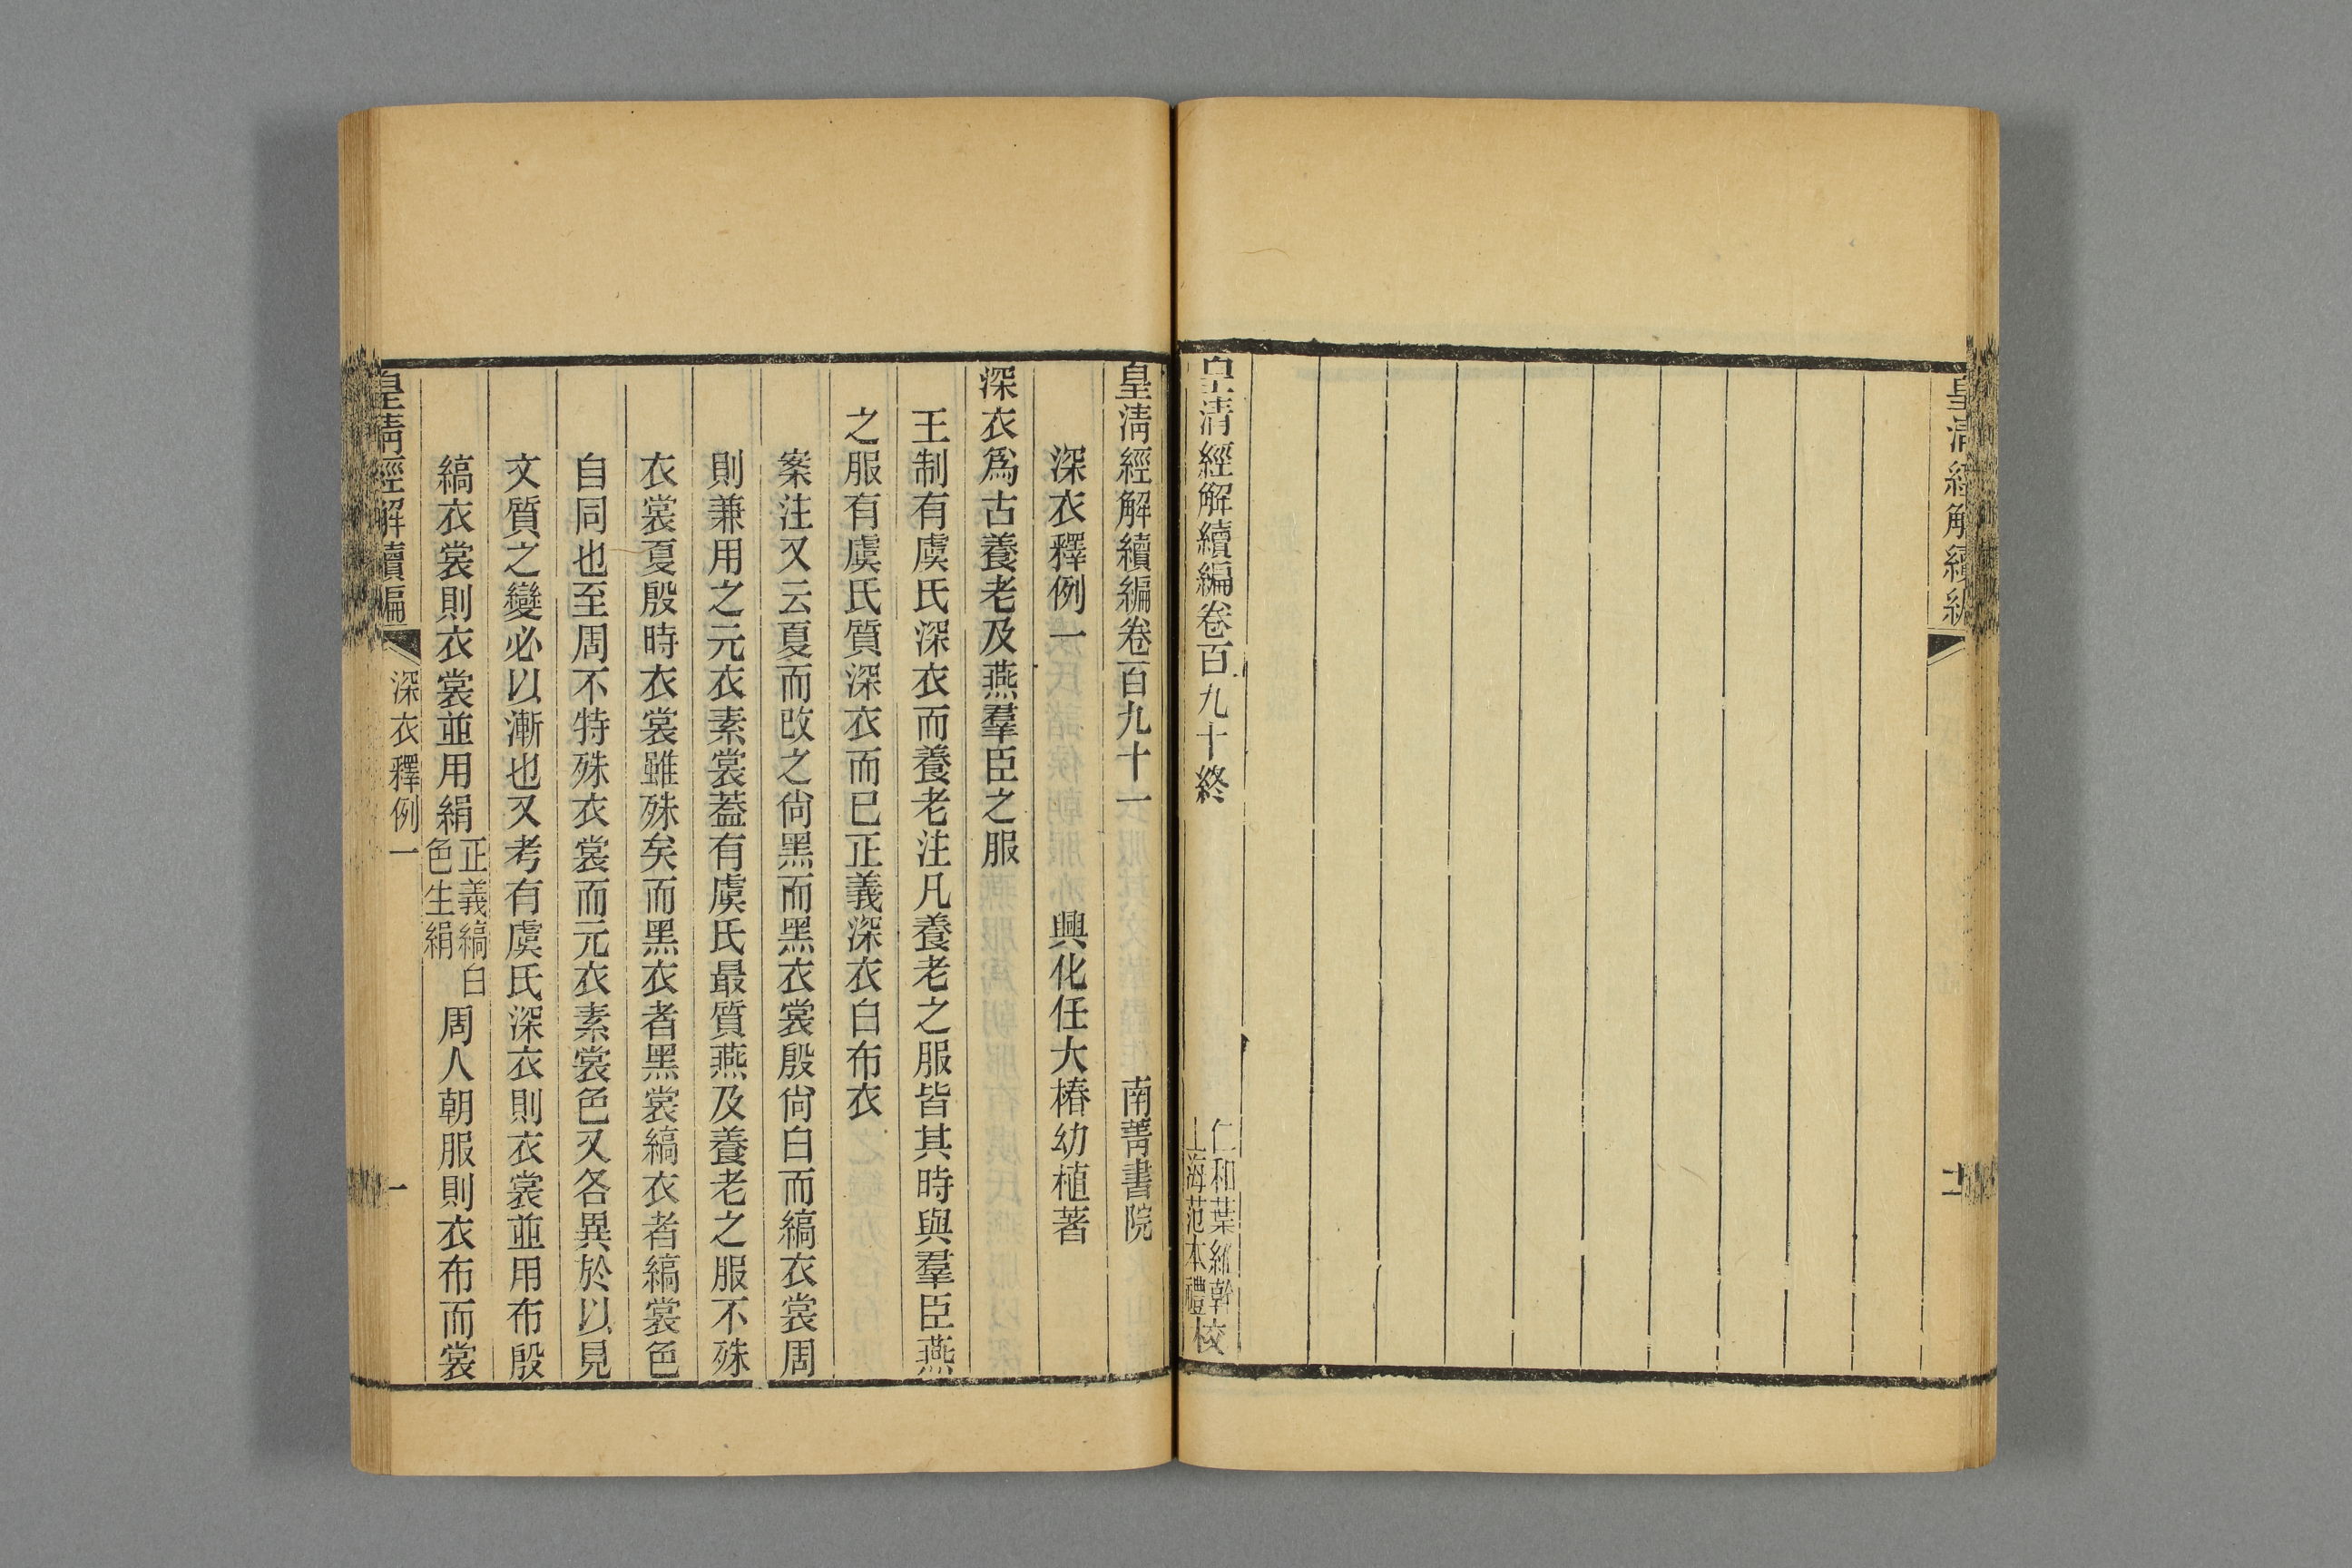 皇清經解續編
十
皇清經解續編卷百九十終
仁和葉維幹
上海范本禮校
皇清經解續編卷百九十一 南菁書院
深衣釋例一 興化任大椿幼植著
深衣爲古養老及燕羣臣之服
王制有虞氏深衣而養老注凡養老之服皆其時與羣臣燕
之服有虞氏質深衣而已正義深衣白布衣
案注又云夏而改之尙黑而黑衣裳殷尙白而縞衣裳周
則兼用之元衣素裳蓋有虞氏最質燕及養老之服不殊
衣裳夏殷時衣裳雖殊矣而黑衣者黑裳縞衣者縞裳色
自同也至周不特殊衣裳而元衣素裳色又各異於以見
文質之變必以漸也又考有虞氏深衣則衣裳並用布殷
縞衣裳則衣裳並用絹正義縞白色生絹周人朝服則衣布而裳
皇清經解續編
深衣釋例一
一